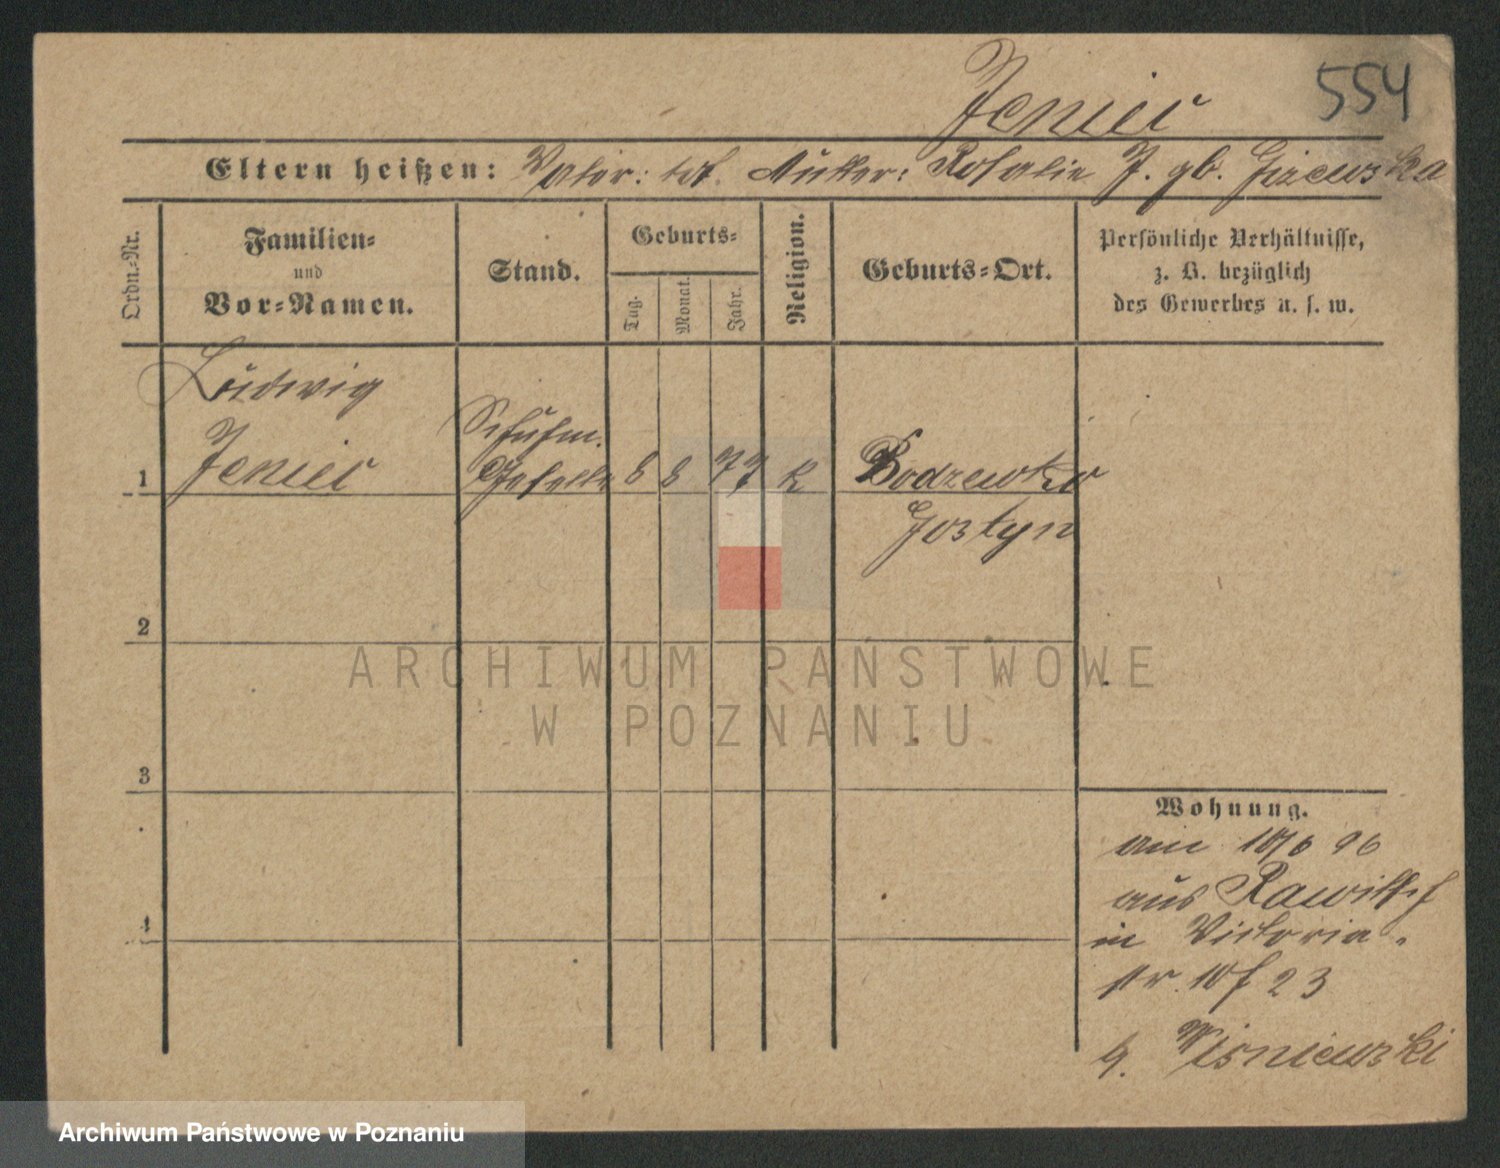 Jeniec
554
Eltern heißen: Vater: tot. Mutter: Rosalie J. gb. Gizewska
Ordn.-Nr.
Familien-
und
Vor-Namen.
Stand.
Geburts-
Tag.
Monat.
Jahr.
Religion.
Geburts-Ort.
Persönliche Verhältnisse,
z. B. bezüglich
des Gewerbes u. s. w.
Ludwig
1 Jeniec Schuhm. Geselle 8 8 77 K Bodzewko
Gostyn
2
3
4
Wohnung.
am 18/6 96
aus Rawitsch
in Victoria-
str. 23
b. Wisniewski
ARCHIWUM PAŃSTWOWE
W POZNANIU
Archiwum Państwowe w Poznaniu